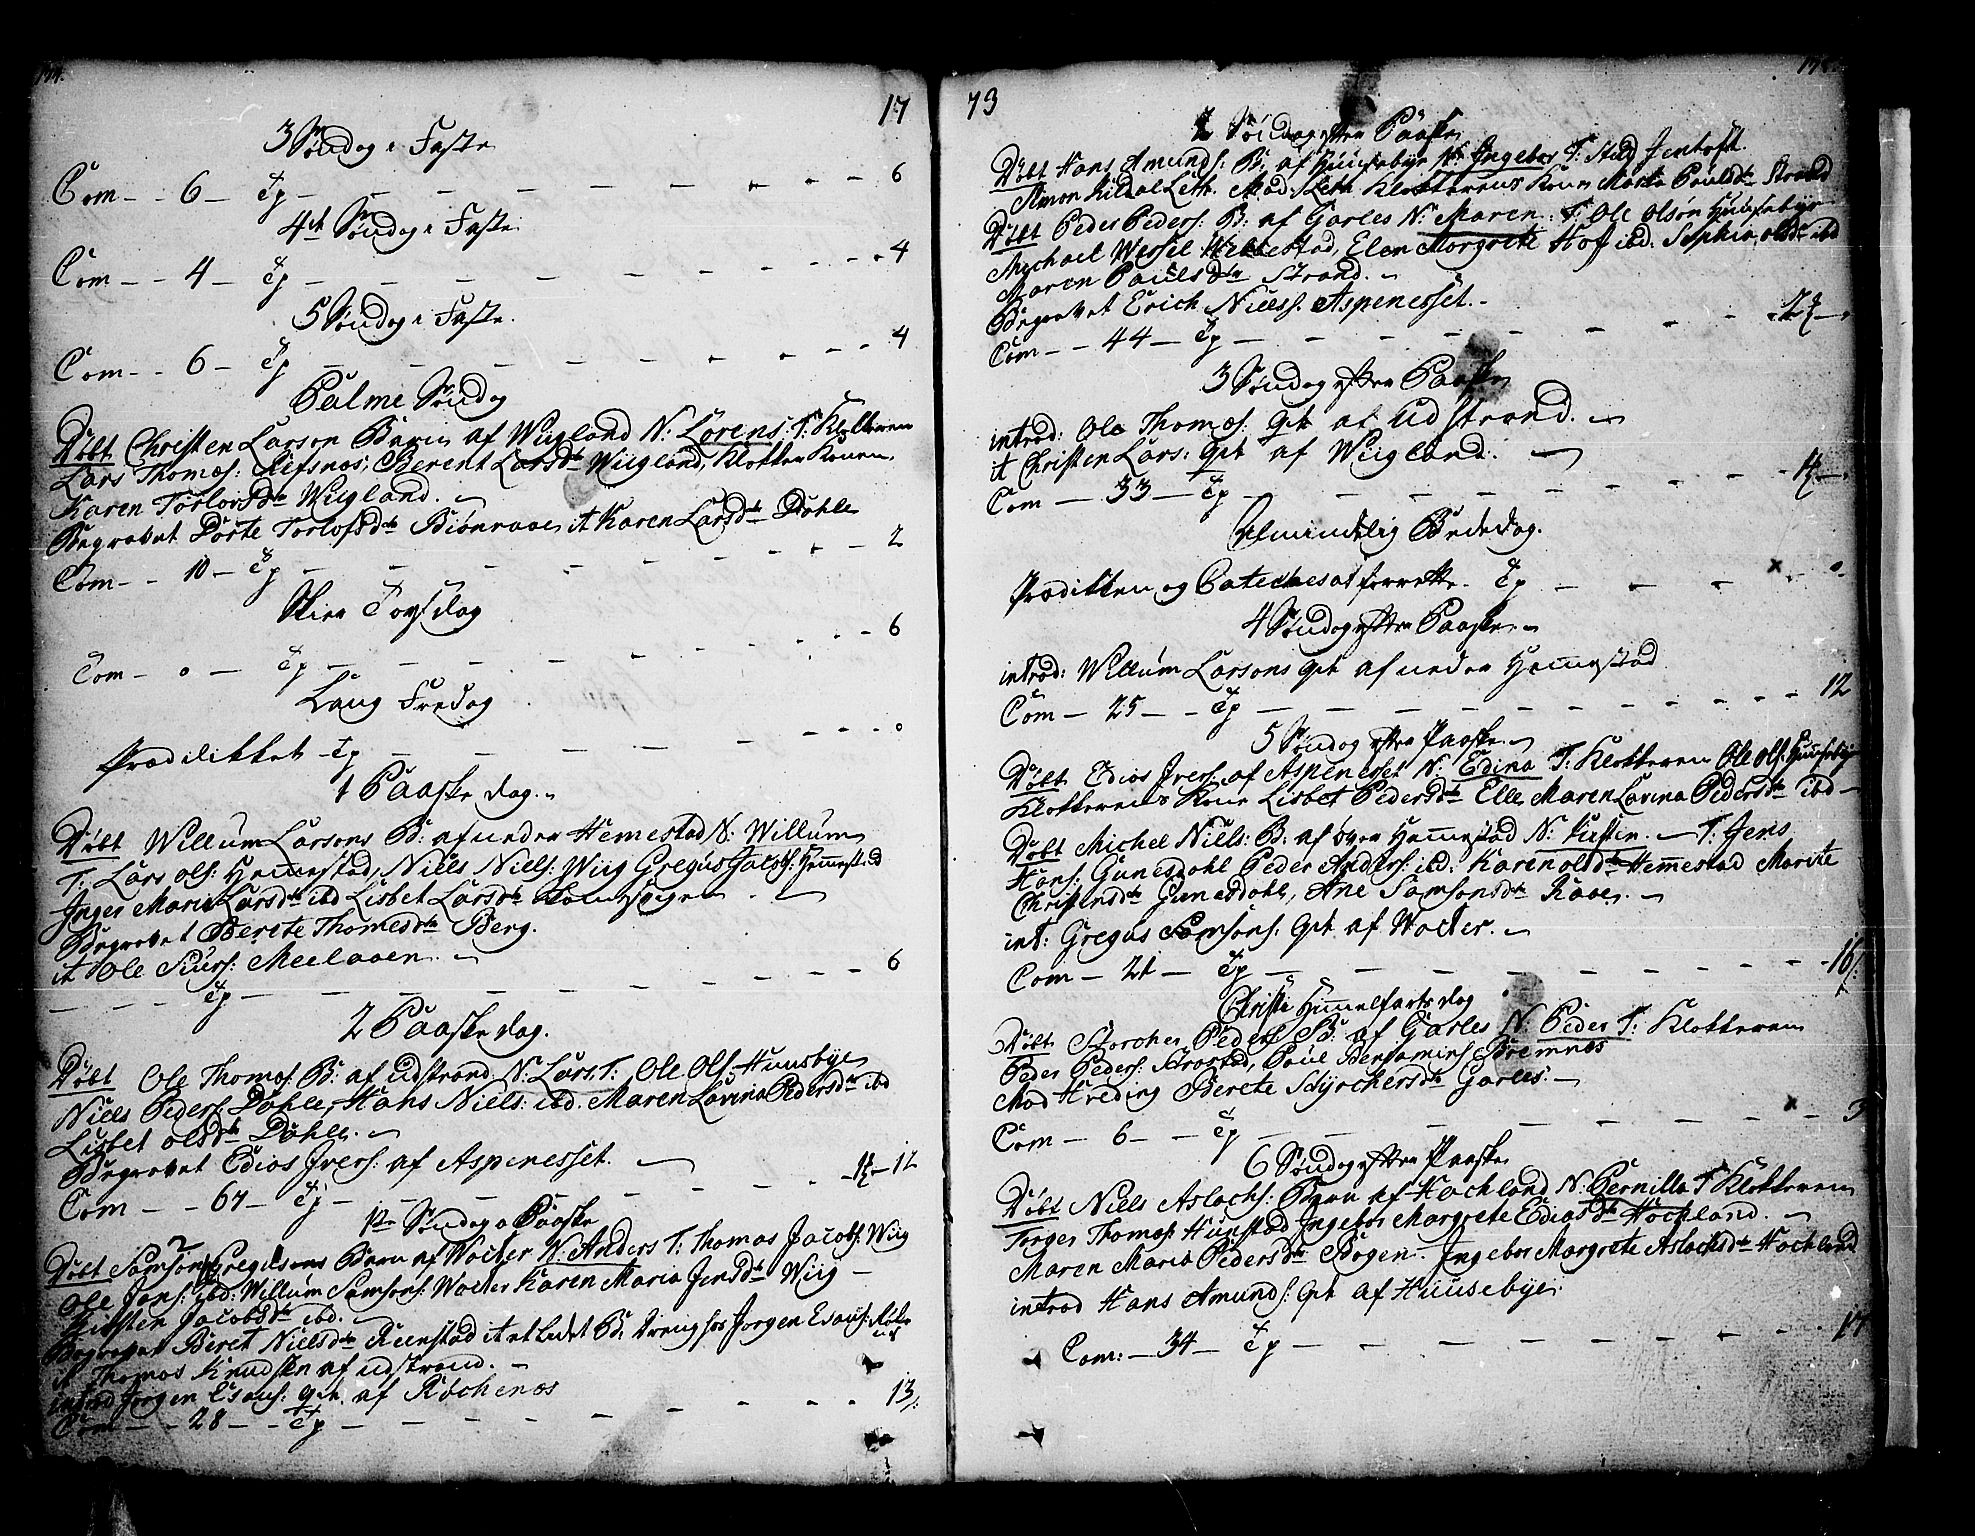 17
3 Søndag i Faste
Com - - 6 - Tp - - - 6
4de Søndag i Faste
Com - - 4 - Tp - - - 4
5 Søndag i Faste.
Com - - 6 - Tp - - - 4
Palme Søndag
Døbt Christen Larson Barn af Wiigland N: Lorens. T: Klokkeren
Lars Thomæs: Refsnæs, Berent Larsdtr Wiigland, Klokker Konen,
Karen Torlofsdtr Wiigland.
Begravet Dorte Torlofsdtr Biönraae, it Karen Larsdtr Dahle
Com - - 10 - Tp - - - 2
Skier Torsdag
Com - 0 - Tp - - - 6
Lang Fredag
Prædikket Tp - - - 0
1 Paaske dag.
Døbt Willum Larsons B: af neder Hemestad N: Willum
T: Lars Ols: Hemestad, Niels Niels: Wiig Gregus Jacobs: Hemestad
Inger Maria Larsdtr ibd Lisbet Larsdtr
Begravet Berete Thomesdtr Berg.
it Ole Siurs: Meelaaen.
- - - Tp - - - 6
2 Paaske dag.
Døbt Ole Thomæs: B: af Udstrand N: Lars. T: Ole Ols: Huusbye
Niels Peders: Dahle, Hans Niels: ibd. Maren Lavina Pedersdtr ibd
Lisbet Olsdtr Dahle.
Begravet Edios Ivers: af Aspenesset.
Com - - 67 - Tp - - - 12
1te Søndag a Paaske
Døbt Samson Gregusons Barn af Wolter N: Anders T: Thomas Jacobs: Wiig
Ole Jons: ibd: Willum Samsons: Wolter Karen Maria Jensdtr Wiig -
Kirsten Jacobsdtr ibd.
Begravet Beret Nielsdtr Reenstad it et Lidet B: Dreng hos Jorgen Esaus:
it Thomas Knudsen af udstrand.
introd Jorgen Esaus: qvt. af Röchenæs
Com - - 28 - - Tp - - - 13
73
2 Søndag efter Paaske
Døbt Hans Amunds: B: af Huusebye N: Ingebor T: Jentoft.
Simon Kildal Leth. Mad: Leth Klokkerens Kone Marta Paulsdtr Strand
Døbt Peder Peders: B: af Garles N: Maren. T: Ole Olsön Huusebye
Mychael Wessel Hekkestad, Elen Margrete Hof ibd. Sophia Olsdtr ibd
Maren Paulsdtr Strand.
Begravet Erich Niels: Aspenesset.
Com - - 44 - Tp - - -
3 Søndag efter Paaske
introd: Ole Thomæs: qvt af Udstrand.
it Christen Lars: qvt af Wiigland.
Com - 33 - Tp - - -
Almindelig Bededag.
Prædikken og Catechesat forrettet. Tp - - - 0
4 Søndag efter Paaske
introd: Willum Larsons qvt af neder Hemestad
Com - 25 - - Tp - - - 12
5 Søndag efter Paaske
Døbt Edios Ivers: af Aspenesset N: Edina T: Klokkeren Ole Ols: Huusebye
Klokkerens Kone Lisbet Pedersdtr Elle, Maren Lavina Pedersdtr ibd -
Døbt Michel Niels: B: af över Hemestad N: Kirsten. - T: Jens
Hans: Gunesdahl Peder Anders: ibd: Karen Olsdtr Hemmestad Marite
Christensdtr Gunesdahl, Ane Samsonsdtr Raae.
int: Gregus Samsons: qvt af Wolter.
Com - 21 - Tp - - - 16
Christi Himmelfarts dag
Døbt Storcher Peders: B: af Garles N: Peder T: Klokkeren
Peder Peders: Strostad, Paul Benjamins: Bremnæs
Mad Hveding Berete Styrchersdtr Garles.
Com - 6 - - Tp - - - 3
6 Søndag efter Paaske
Døbt Niels Aslachs: Barn af Hochland N: Pernilla T: Klokkeren
Torger Thomæs: Hunstad Ingebor Margrete Ediasdtr Hochland.
Maren Maria Pedersdtr Bogen. Ingebor Margrete Aslachsdtr Hochland
introd Hans Amunds: qvt af Huusebye.
Com: - 34 - Tp - - - 17